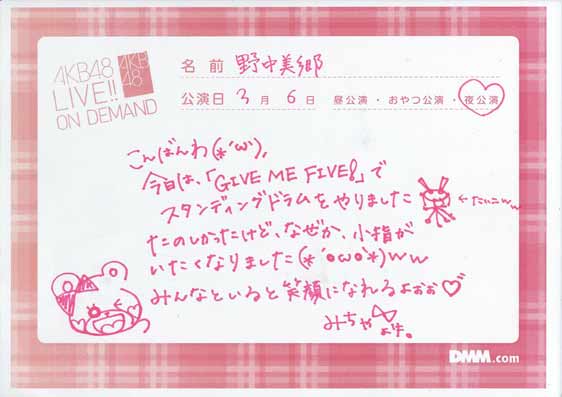 AKB48
LIVE!!
ON DEMAND
AKB
48
名前 野中美郷
公演日 3月6日 昼公演・おやつ公演・夜公演
こんばんわ(*´ω`),
今日は、「GIVE ME FIVE!」で
スタンディングドラムをやりました
←たいこww
たのしかったけど、なぜか、小指が
いたくなりました(*´oωo`*)ww
みんなといると笑顔になれるよぉぉ♡
みちゃ
DMM.com